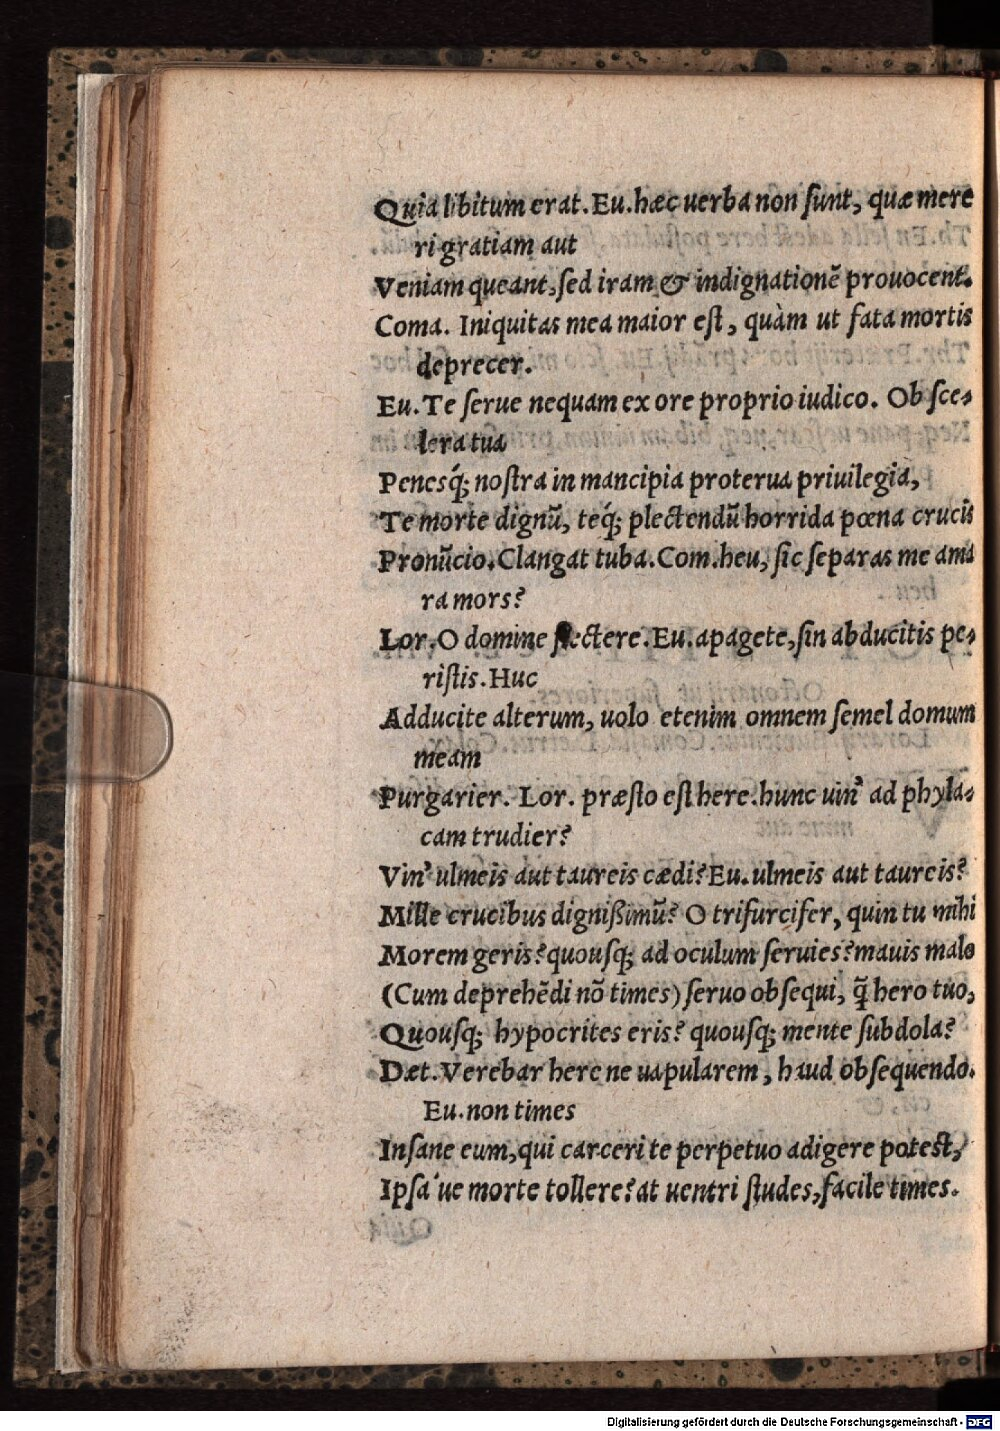 Quia libitum erat. Eu. hæc uerba non sunt, quæ mere
ri gratiam aut
Veniam queant, sed iram & indignationẽ prouocent.
Coma. Iniquitas mea maior est, quàm ut fata mortis
deprecer.
Eu. Te serue nequam ex ore proprio iudico. Ob sce-
lera tua
Penesq́; nostra in mancipia proterua priuilegia,
Te morte dignũ, teq́; plectendũ horrida pœna crucis
Pronũcio. Clangat tuba. Com. heu, sic separas me ama
ra mors?
Lor. O domine flectere. Eu. apagete, sin abducitis pe-
ristis. Huc
Adducite alterum, uolo etenim omnem semel domum
meam
Purgarier. Lor. præsto est here. hunc uin' ad phyla-
cam trudier?
Vin' ulmeis aut taureis cædi? Eu. ulmeis aut taureis?
Mille crucibus dignißimũ? O trifurcifer, quin tu mihi
Morem geris? quousq; ad oculum seruies? mauis malo
(Cum deprehẽdi nõ times) seruo obsequi, q̃ hero tuo,
Quousq; hypocrites eris? quousq; mente subdola?
Dæt. Verebar here ne uapularem, haud obsequendo.
Eu. non times
Insane eum, qui carceri te perpetuo adigere potest,
Ipsa'ue morte tollere? at uentri studes, facile times.
Digitalisierung gefördert durch die Deutsche Forschungsgemeinschaft - DFG